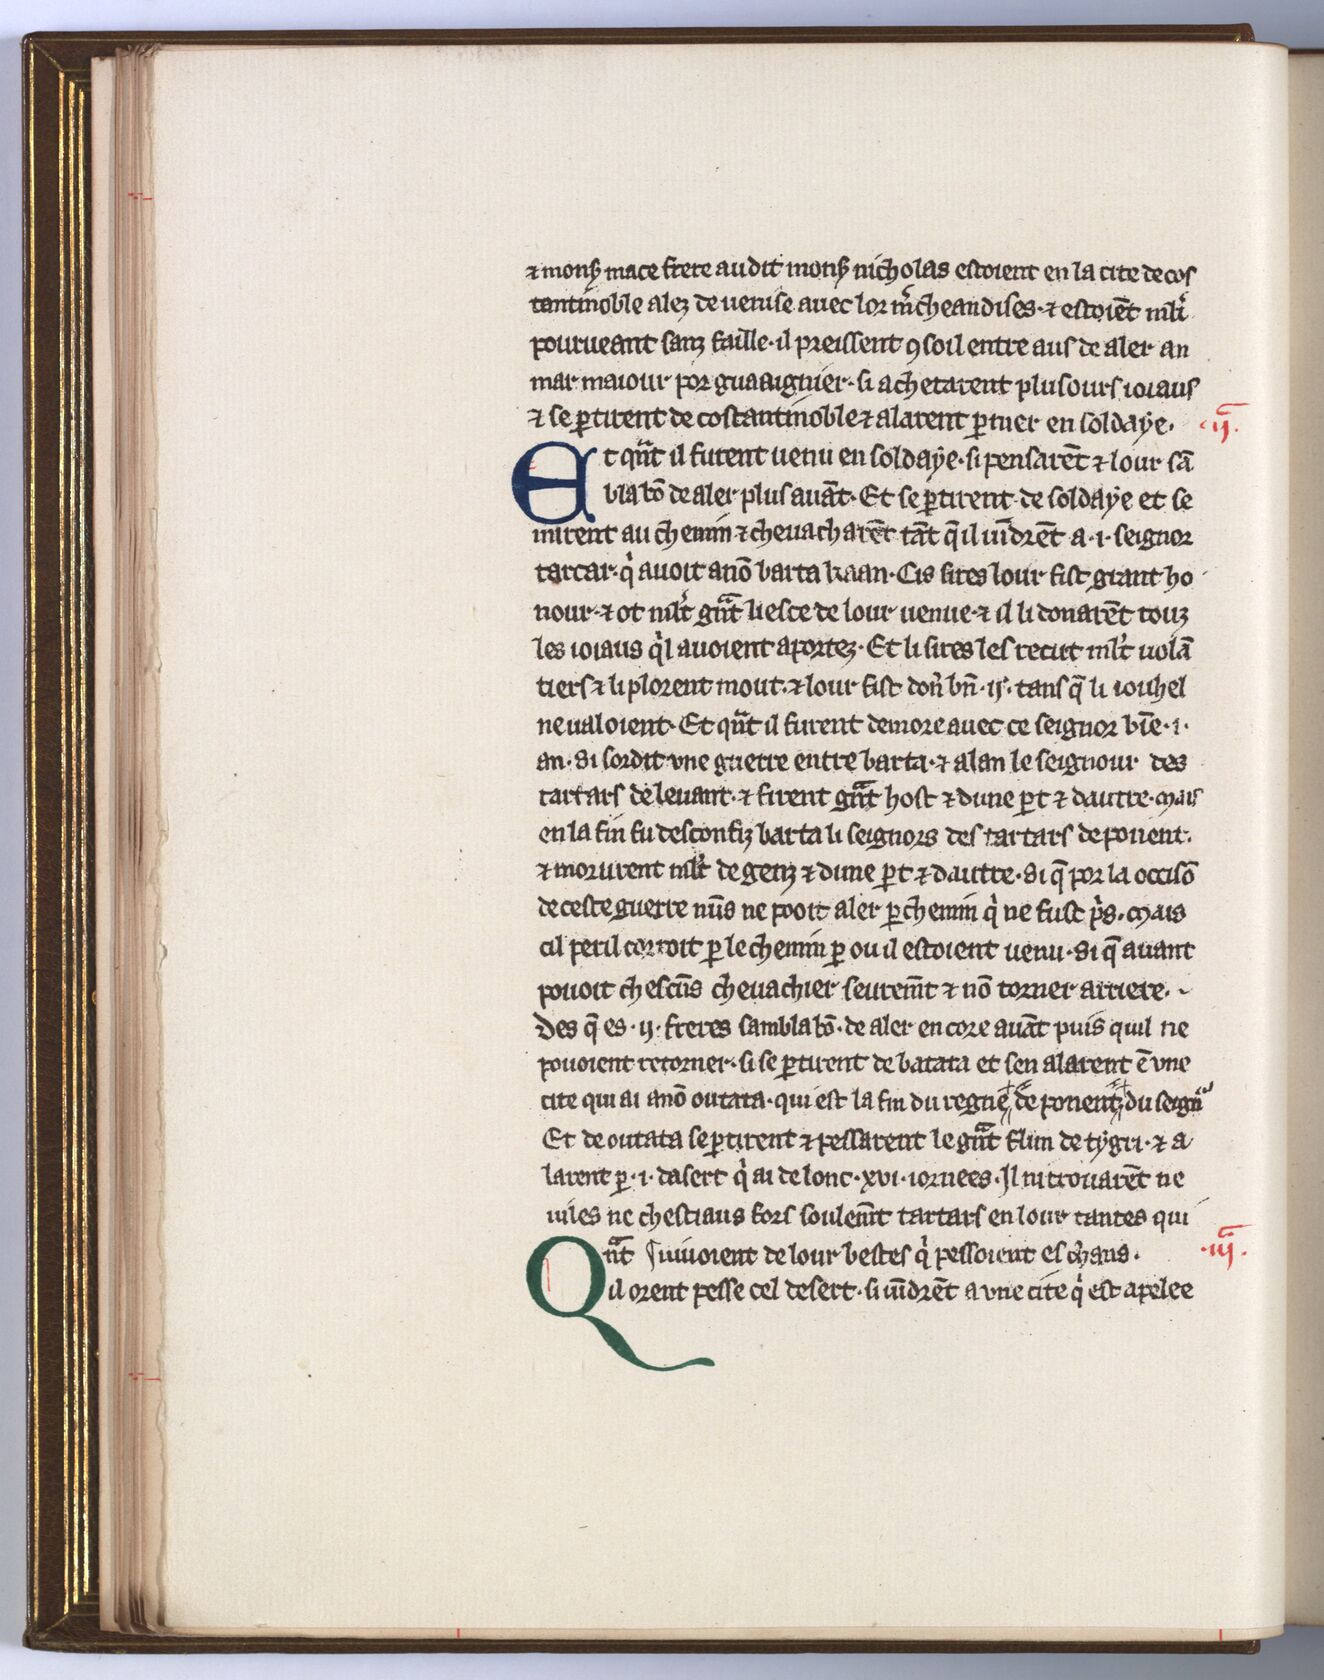 ⁊ monſ mace frere audit monſ nicholas estoient en la cite de cos
tantinoble alez de uenise auec lor mͬcheandises·⁊ estoiēt mlꝉt
pourueant sanz faille·il preissent ꝯsoil entre aus de aler an
mar maiour por guaaignier·si achetarent plusours ioiaus
⁊ se ꝑtirent de costantinoble ⁊ alarent ꝑ mer en soldaÿe·
·ij·
Et qn̄t il furent uenu en soldaÿe·si pensarēt ⁊ lour sā
bla bō de aler plus auāt· Et se ꝑtirent de soldaÿe et se
mirent au chemin ⁊ cheuacharēt tāt q̄ il uīdrēt a·i·seignor
tartar·qͥ auoit a nō barta kaan·Cis sires lour fist grant ho
nour·⁊ ot mlꝉt gn̄t liesce de lour uenue·⁊ il li donarēt touz
les ioiaus qͥl auoient aportez·Et li sires les recut mlꝉt uolā
tiers ⁊ li plorent mout·⁊ lour fist don̄ bn̄·ij·tans q̄ li iouhel
ne ualoient·Et qn̄t il furent demore auec ce seignor bīe·i·
an·si sordit vne guerre entre barta·⁊ alan le seignour des
tartars de leuant·⁊ firent gn̄t host ⁊ dune ꝑt ⁊ dautre·mais
en la fin fu desconfiz barta li seignors des tartars de ponent·
⁊ morurent mlꝉt de genz ⁊ dune ꝑt ⁊ dautre·si q̄ por la occisō
de ceste guerre nūs ne pooit aler ꝑ chemin qͥ ne fust pͥs·mais
cil peril corroit ꝑ le chemin ꝑ ou il estoient uenu·si q̄ auant
pouoit chescūs cheuachier seurem̄t ⁊ nō torner arriere·
Des q̄ es·ij·freres sambla bō·de aler encore auāt puis quil ne
pouoient retorner·si se ꝑtirent de batata et sen alarent ē vne
cite qui ai a nō outata·qui est la fin du regne de ponent du seignͣ
Et de outata se ꝑtirent ⁊ passarent le gn̄t flun de tÿgri·⁊ a
larent ꝑ·i·dasert qͥ ai de lonc·xvi·iornees·Il ni trouarēt ne
uiles ne chestiaus fors soulem̄t tartars en lour tantes qui
·iij·
Qn̄t uiuoient de lour bestes qͥ pessoient es chans·
il orent passe cel desert·si uīdrēt a vne cite qͥ est apelee